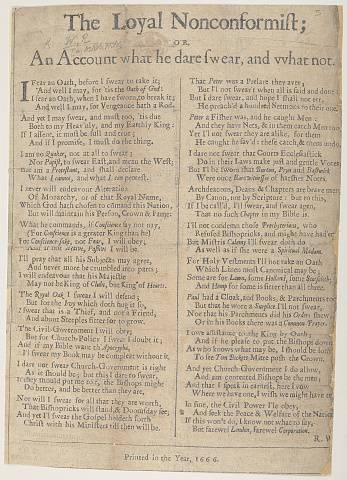 The Loyal Nonconformist;
OR,
An Account what he dare swear, and what not.
I Fear an Oath, before I swear to take it;
And well I may, for 'tis the Oath of God:
I fear an Oath, when I have sworn, to break it;
And well I may, for Vengeance hath a Rod.
And yet I may swear, and must too, 'tis due
Both to my Heav'nly, and my Earthly King:
If I assent, it must be full and true;
And if I promise, I must do the thing.
I am no Quaker, not at all to swear;
Nor Papist, to swear East, and mean the West;
But am a Protestant, and shall declare
What I cannot, and what I can protest.
I never will endeavour Alteration
Of Monarchy, or of that Royal Name,
Which God hath chosen to command this Nation,
But will maintain his Person, Crown & Fame:
What he commands, if Conscience say not nay,
(For Conscience is a greater King than he)
For Conscience-sake, not Fear, I will obey;
And if not Active, Passive I will be.
I'll pray that all his Subjects may agree,
And never more be crumbled into parts;
I will endeavour that his Majestie
May not be King of Clubs, but King of Hearts.
The Royal Oak I swear I will defend;
But for the Ivy which doth hug it so,
I swear that is a Thief, and not a Friend,
And about Steeples fitter for to grow.
The Civil-Government I will obey;
But for Church-Policy I swear I doubt it;
And if my Bible want th' Apocrypha,
I'll swear my Book may be compleat without it.
I dare not swear Church-Government is right
As it should be; but this I dare to swear,
If they should put me to't, the Bishops might
Do better, and be better than they are.
Nor will I swear for all that they are worth,
That Bishopricks will stand, & Doomsday see;
And yet I'll swear the Gospel holdeth forth
Christ with his Ministers till then will be.
That Peter was a Prelate they aver;
But I'll not swear't when all is said and done:
But I dare swear, and hope I shall not err,
He preach'd a hundred Sermons to their one.
Peter a Fisher was, and he caught Men:
And they have Nets, & in them catch Men too;
Yet I'll not swear they are alike, for them
He caught he sav'd: these catch, & them undo.
I dare not swear that Courts Ecclesiastick
Do in their Laws make just and gentle Votes:
But I'll be sworn that Burton, Pryn and Bastwick
Were once Ear-witnesses of harsher Notes.
Archdeacons, Deans & Chapters are brave men
By Canon, not by Scripture: but to this,
If I be call'd, I'll swear, and swear agen,
That no such Chapter in my Bible is.
I'll not condemn those Presbyterians, who
Refused Bishopricks, and might have had 'em:
But Mistris Calamy I'll swear doth do
As well as if she were a Spiritual Madam.
For Holy Vestments I'll not take an Oath
Which Linen most Canonical may be;
Some are for Lawn, some Holland, some Scotch-cloth;
And Hemp for some is fitter than all three.
Paul had a Cloak, and Books, & Parchments too:
But that he wore a Surplice I'll not swear,
Nor that his Parchments did his Orders shew,
Or in his Books there was a Common-Prayer.
I owe assistance to the King by Oath;
And if he please to put the Bishops down,
As who knows what may be, I should be loth
To see Tom Beckets Mitre push the Crown.
And yet Church-Government I do allow,
And am contented Bishops be the men;
And that I speak in earnest, here I vow
Where we have one, I wish we might have ten.
In fine, the Civil Power I'll obey,
And seek the Peace & Welfare of the Nation:
If this won't do, I know not what to say,
But farewel London, farewel Corporation.
R. W.
Printed in the Year, 1666.